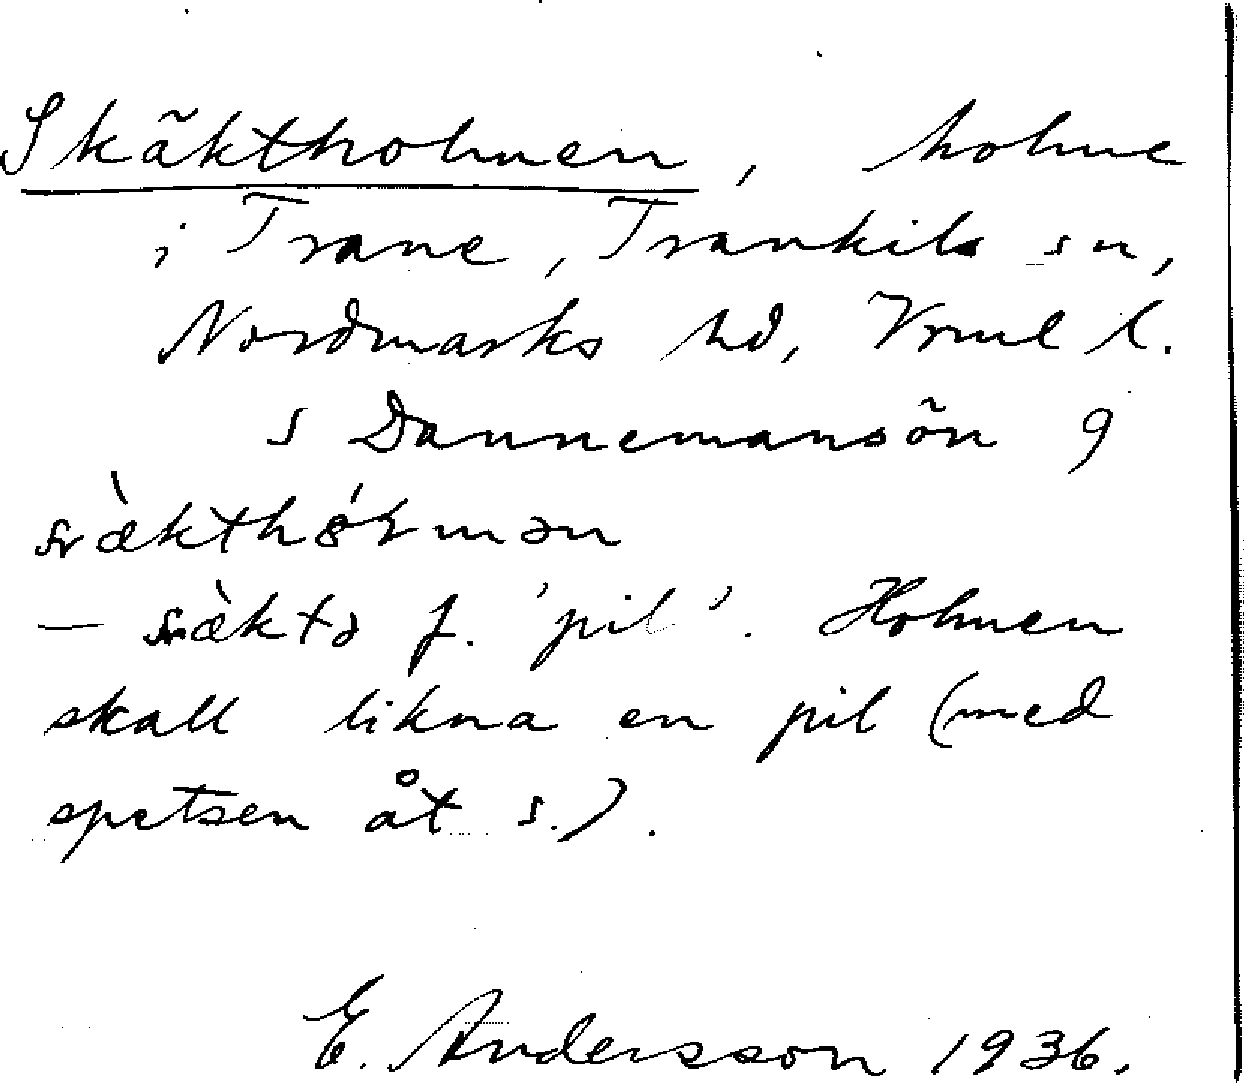 Skäktholmen, holme
i Trane, Trankils sn,
Nordmarks hd, Vrml l.
S Dannemansön 9
— f. 'pil'. Holmen
skall likna en pil (med
spetsen åt s.).
E. Andersson 1936.